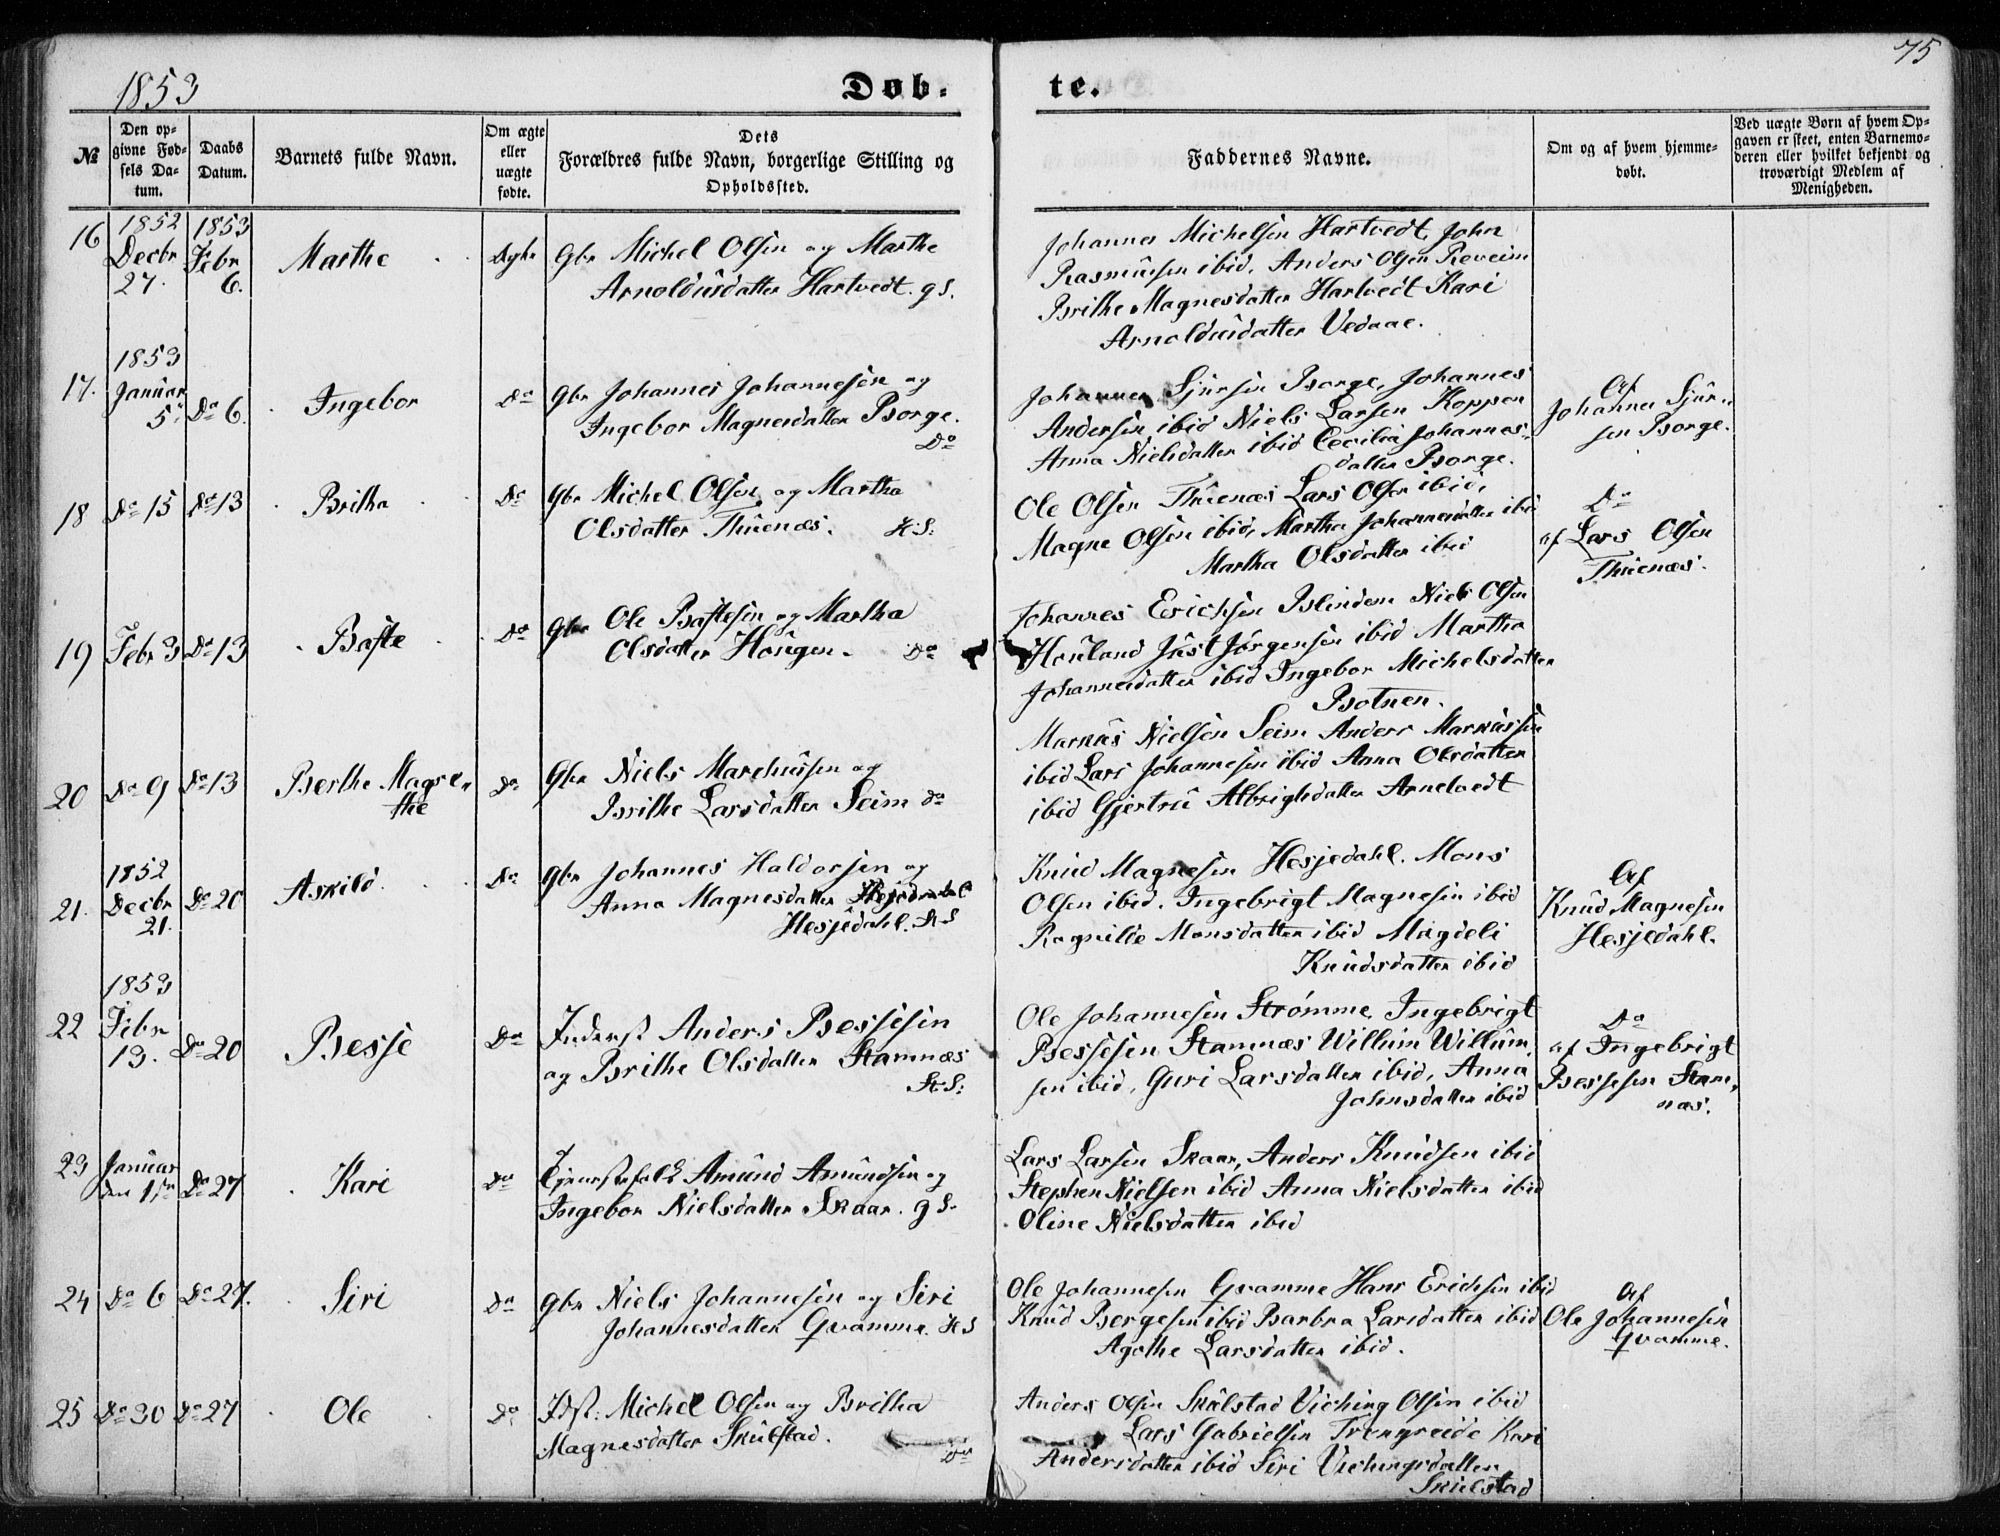 1853
Døb-
te.
75
№
Den op-
givne Fød-
sels Da-
tum.
Daabs
Datum.
Barnets fulde Navn.
Om ægte
eller
uægte
fødte.
Dets
Forældres fulde Navn, borgerlige Stilling og
Opholdssted.
Faddernes Navne.
Om og af hvem hjemme-
døbt.
Ved uægte Børn af hvem Op-
gaven er skeet, enten Barnemo-
deren eller hvilket bekjendt og
troværdigt Medlem af
Menigheden.
16
1852
Decbr
27.
1853
Febr
6.
Marthe
Ægte
Gbr Michel Olsen og Marthe
Arnoldusdatter Hartvedt. g S.
Johannes Michelsen Hartvedt, John
Rasmussen ibid. Anders Olsen Reveim
Brithe Magnesdatter Hartvedt Kari
Arnoldusdatter Vedaae.
17.
1853
Januar
5.
Do 6.
Ingebor
Do
Gbr Johannes Johannesen og
Ingebor Magnesdatter Borge.
Do
Johannes Sjursen Borge, Johannes
Andersen ibid Niels Larsen Koppen
Anna Nielsdatter ibid Cecilia Johannes-
datter Borge.
Af
Johannes Sjur-
sen Borge.
18
Do 15
Do 13
Britha
Do
Gbr Michel Olsen og Martha
Olsdatter Thuenæs. H.S:
Ole Olsen Thuenæs Lars Olsen ibid,
Magne Olsen ibid, Martha Johannesdatter ibid
Martha Olsdatter ibid
Do
af Lars Olsen
Thuenæs.
19
Febr 3
Do 13
Baste
Do
Gbr Ole Bastesen og Martha
Olsdatter Hougen. Do
Johannes Erichsen Blindem Niels Olsen
Houland Just Jørgensen ibid Martha
Johannesdatter ibid Ingebor Michelsdatter
Botnen.
20
Do 9
Do 13
Berthe Magre-
the
Do
Gbr Niels Marchussen og
Brithe Larsdatter Seim do
Markus Nielsen Seim Anders Markussen
ibid Lars Johannesen ibid Anna Olsdatter
ibid Gjertru Albrigtsdatter Arnetvedt
21.
1852
Decbr
21.
Do 20
Askild
Do
Gbr Johannes Haldorsen og
Anna Magnesdatter
Hesjedahl. St S
Knud Magnesen Hesjedahl. Mons
Olsen ibid. Ingebrigt Magnesen ibid
Ragnilde Monsdatter ibid Magdeli
Knudsdatter ibid
Af
Knud Magnesen
Hesjedahl.
22
1853
Febr
13.
Do 20
Besse
Do
Inderst Anders Bessesen
og Brithe Olsdatter Stamnæs
St S:
Ole Johannesen Strømme, Ingebrigt
Bessesen Stamnæs Willum Willum
sen ibid, Guri Larsdatter ibid, Anna
Johnsdatter ibid
Do
af Ingebrigt
Bessesen Stam-
næs.
23
Januar
den 1ste
Do 27
Kari
Do
Tjenestefolk Amund Amundsen og
Ingebor Nielsdatter Skaar. g S.
Lars Larsen Skaar, Anders Knudsen ibid
Stephen Nielsen ibid Anna Nielsdatter ibid
Oline Nielsdatter ibid
24
Do 6
Do 27.
Siri
Do
Gbr Niels Johannesen og Siri
Johannesdatter Qvamme. H S
Ole Johannesen Qvamme Hans Erichsen ibid
Knud Bergesen ibid Barbra Larsdatter ibid
Agothe Larsdatter ibid.
Af
Ole Johannesen
Qvamme.
25
Do 30
Do 27
Ole
Do
Idst: Michel Olsen og Britha
Magnesdatter Skulstad.
Do
Anders Olsen Skulstad Viching Olsen ibid
Lars Gabrielsen Trengreide Kari
Andersdatter ibid Siri Vichingsdatter
Skulstad